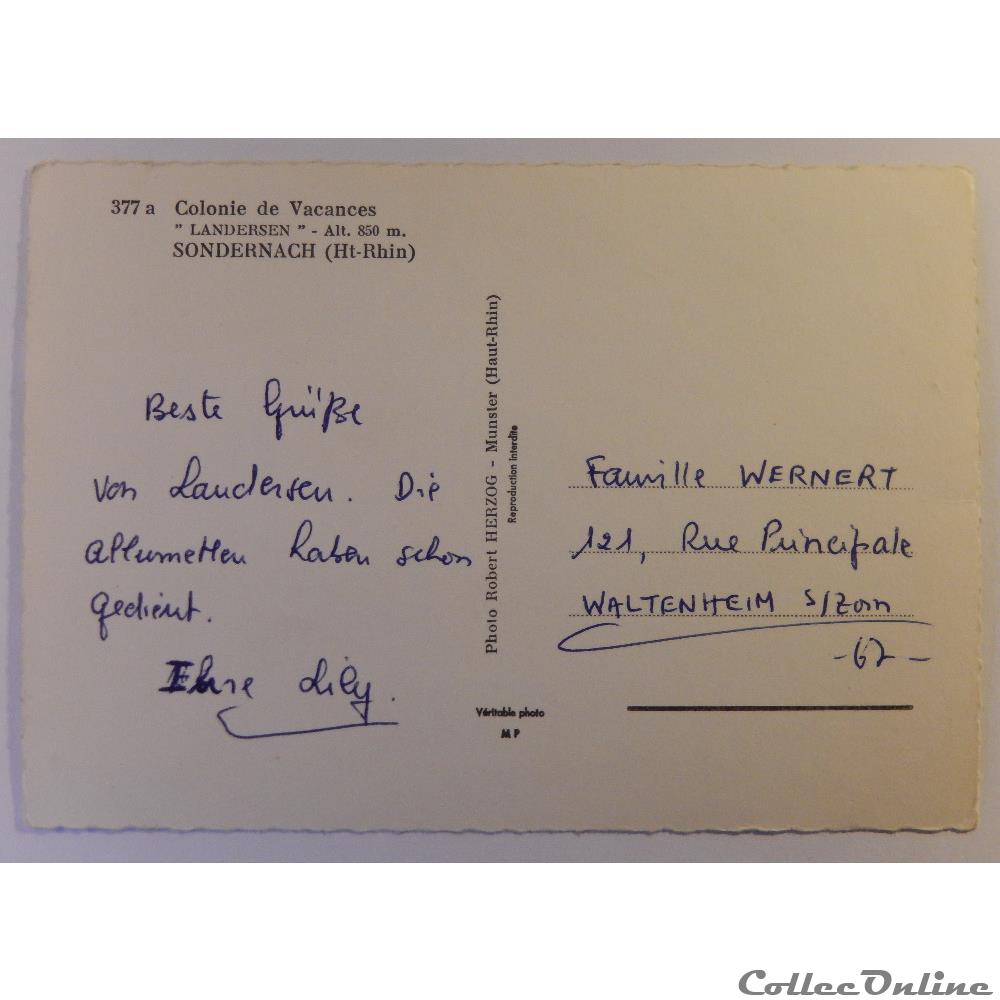 377 a Colonie de Vacances
" LANDERSEN " - Alt. 850 m.
SONDERNACH (Ht-Rhin)
Beste Grüße
von Landersen. Die
Allumetten haben schon
gedient.
Ihre Lily.
Photo Robert HERZOG - Munster (Haut-Rhin)
Reproduction interdite
Véritable photo
M P
Famille WERNERT
121, Rue Principale
WALTENHEIM S/Zorn
- 67 -
CollecOnline